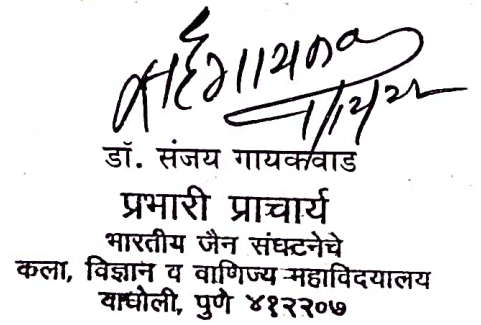 डॉ. संजय गायकवाड
प्रभारी प्राचार्य
भारतीय जैन संघटनेचे
कला, विज्ञान व वाणिज्य महाविदयालय
वाघोली, पुणे ४१२२०७